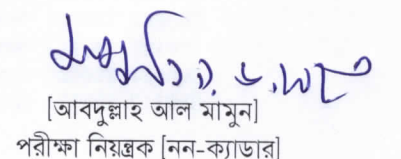 [আবদুল্লাহ আল মামুন]
পরীক্ষা নিয়ন্ত্রক [নন-ক্যাডার]